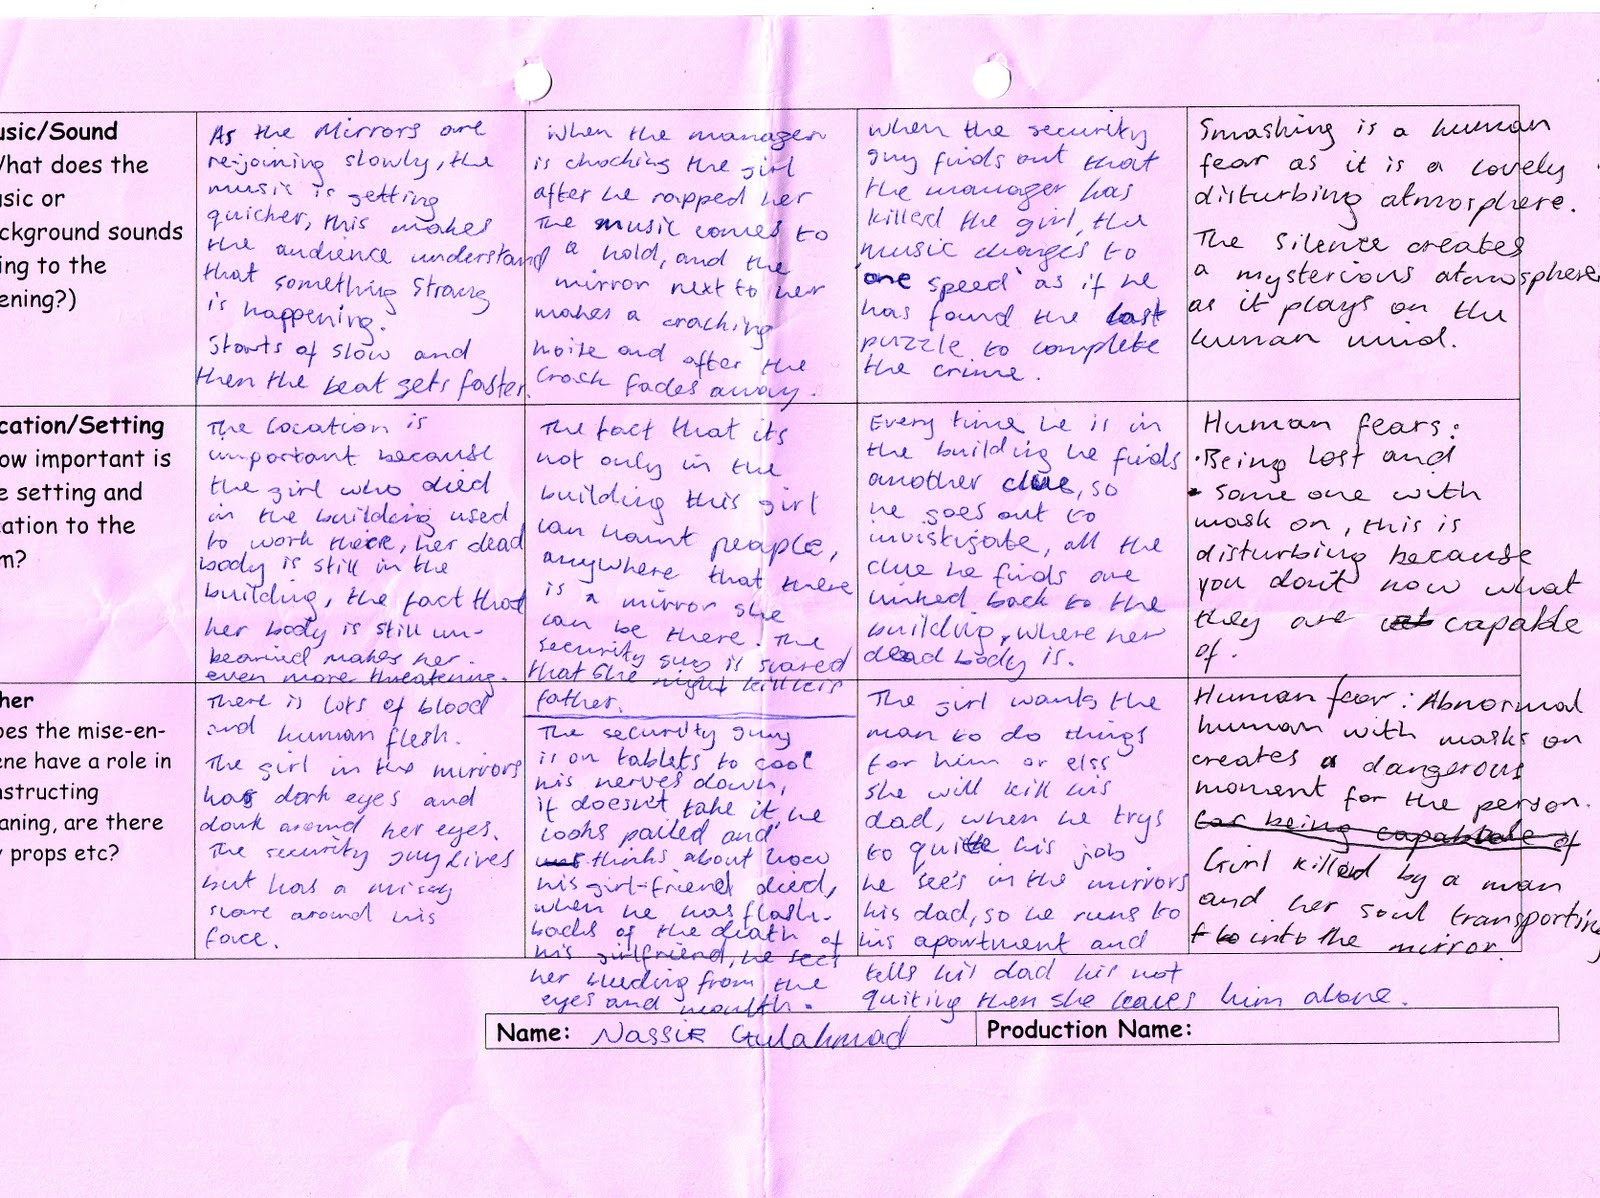 usic/Sound
What does the
usic or
ckground sounds
ing to the
ening?)
As the Mirrors are
re-joining slowly, the
music is getting
quicher, this makes
the audience understand
that something Strang
is happening.
Starts of slow and
then the beat gets faster.
When the manager
is choching the girl
after he rapped her
The music comes to
a hold, and the
mirror next to her
makes a craching
noise and after the
Crack fades away.
When the security
guy finds out that
the manager has
killed the girl, the
music changes to
one speed as if he
has found the last
puzzle to complete
the crime.
Smashing is a human
fear as it is a lovely
disturbing atmosphere.
The silence creates
a mysterious atmosphere
as it plays on the
human mind.
cation/Setting
ow important is
e setting and
cation to the
m?
The Location is
important because
the girl who died
in the building used
to work there, her dead
body is still in the
building, the fact that
her body is still un-
bearied makes her
even more threatening.
The fact that its
not only in the
building this girl
can haunt people,
anywhere that there
is a mirror she
can be there. The
security guy is scared
that she might kill his
father.
Every time he is in
the building he finds
another clue, so
he goes out to
invistigate, all the
clue he finds are
linked back to the
building, where her
dead body is.
Human fears:
• Being Lost and
• Some one with
mask on, this is
disturbing because
you don't now what
they are capable
of.
her
oes the mise-en-
ene have a role in
nstructing
aning, are there
y props etc?
There is lots of blood
and human flesh.
The girl in the mirrors
has dark eyes and
dark around her eyes.
The security guy Lives
but has a
scare around his
face.
The security guy
is on tablets to cool
his nerves down,
if doesn't take it, he
looks pailed and
thinks about how
his girl-friend died,
when he has flash-
backs of the death of
his girlfriend, he sees
her bleeding from the
eyes and mouth.
The girl wants the
man to do things
for him or else
she will kill his
dad, when he trys
to quite his job
he see's in the mirrors
his dad, so he runs to
his apartment and
tells his dad his not
quiting then she leaves him alone.
Human fear: Abnormal
human with masks on
creates a dangerous
moment for the person.
car being capable of
Girl killed by a man
and her soul transporting
into the mirror.
Name: Nassir Gulahmad
Production Name: